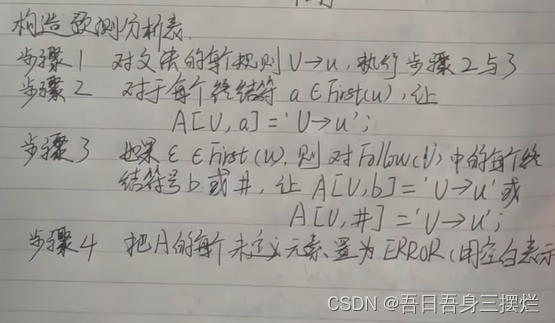 构造预测分析表
步骤1 对文法的每个规则U→u,执行步骤2与3
步骤2 对于每个终结符a∈First(u),让
A[U,a]='U→u';
步骤3 如果ε∈First(u),则对Follow(U)中的每个终
结符号b或#,让A[U,b]='U→u'或
A[U,#]='U→u';
步骤4 把A的每个未定义元素置为ERROR(用空白表示
CSDN @吾日吾身三摆烂